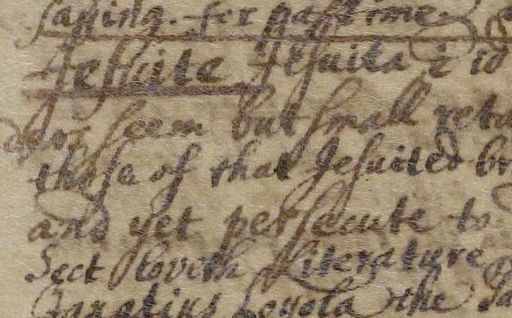 saying. for pastime
Jesuite Jesuita
seem but small reta
those of that Jesuited br
and yet persecute to
Sect loveth Literature
Ignatius Loyola the